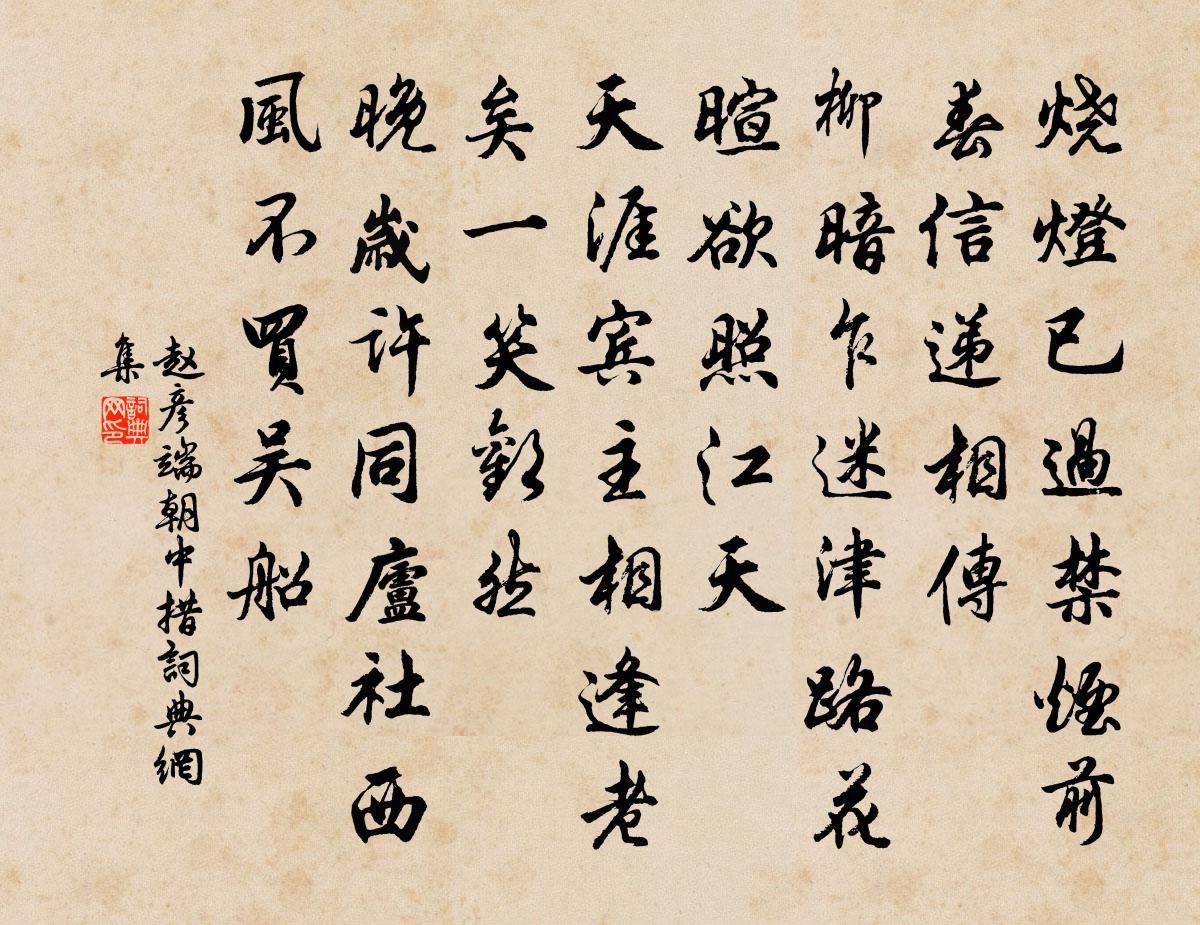 烧燈已過禁煙前
春信递相傳
柳暗乍迷津路花
暄欲照江天
天涯宾主相逢老
矣一笑歡然
晚歲许同廬社西
風不買吴船
赵彦端朝中措詞典網
集
詞典
网印